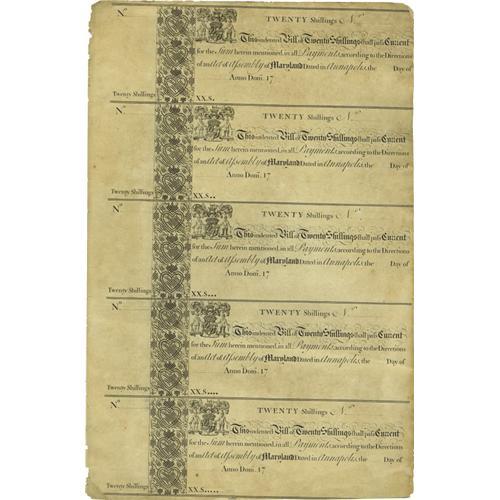 No TWENTY Shillings No
This indented Bill of Twenty Shillings shall pass Current
for the Sum herein mentioned, in all Payments, according to the Directions
of an Act of Assembly of Maryland Dated in Annapolis, the Day of
Anno Dom. 17
Twenty Shillings XX.S.
No TWENTY Shillings No
This indented Bill of Twenty Shillings shall pass Current
for the Sum herein mentioned, in all Payments, according to the Directions
of an Act of Assembly of Maryland Dated in Annapolis, the Day of
Anno Dom. 17
Twenty Shillings XX.S..
No TWENTY Shillings No
This indented Bill of Twenty Shillings shall pass Current
for the Sum herein mentioned, in all Payments, according to the Directions
of an Act of Assembly of Maryland Dated in Annapolis, the Day of
Anno Dom. 17
Twenty Shillings XX.S...
No TWENTY Shillings No
This indented Bill of Twenty Shillings shall pass Current
for the Sum herein mentioned, in all Payments, according to the Directions
of an Act of Assembly of Maryland Dated in Annapolis, the Day of
Anno Dom. 17
Twenty Shillings XX.S....
No TWENTY Shillings No
This indented Bill of Twenty Shillings shall pass Current
for the Sum herein mentioned, in all Payments, according to the Directions
of an Act of Assembly of Maryland Dated in Annapolis, the Day of
Anno Dom. 17
Twenty Shillings XX.S.....